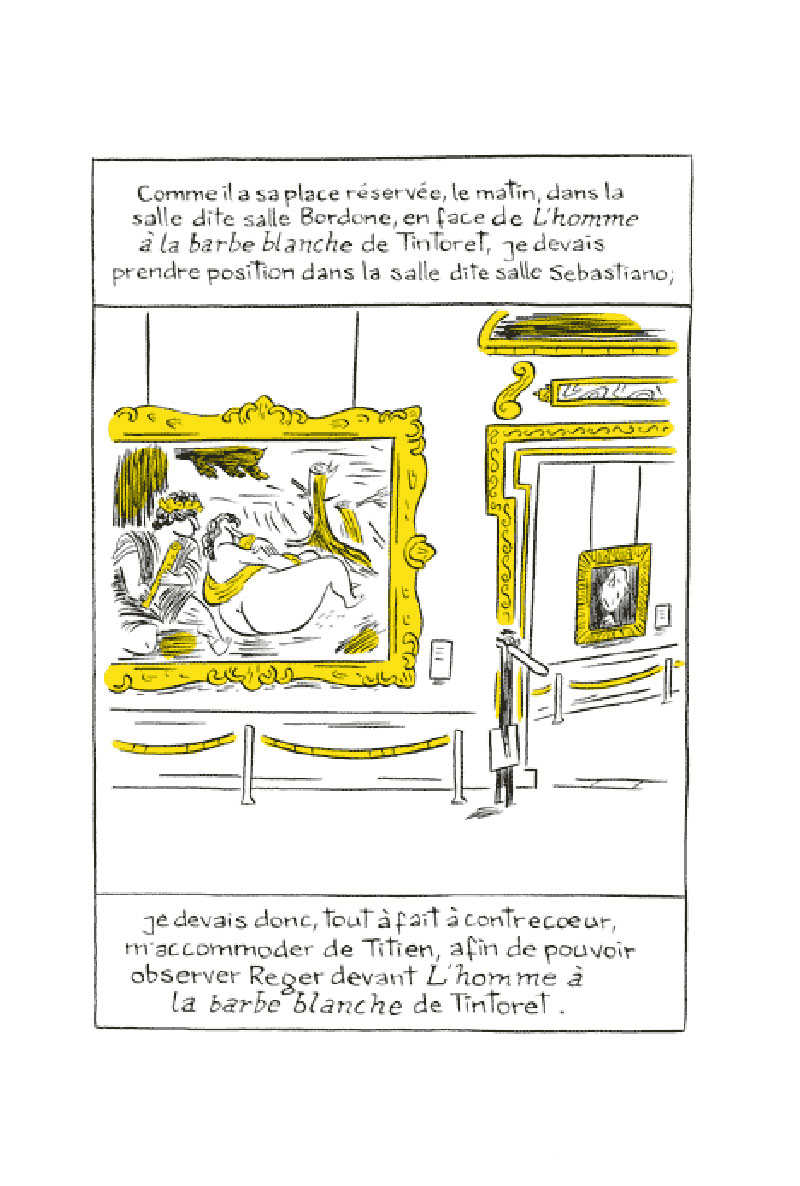 Comme il a sa place réservée, le matin, dans la
salle dite salle Bordone, en face de L'homme
à la barbe blanche de Tintoret, je devais
prendre position dans la salle dite salle Sebastiano;
je devais donc, tout à fait à contrecœur,
m'accommoder de Titien, afin de pouvoir
observer Reger devant L'homme à
la barbe blanche de Tintoret.